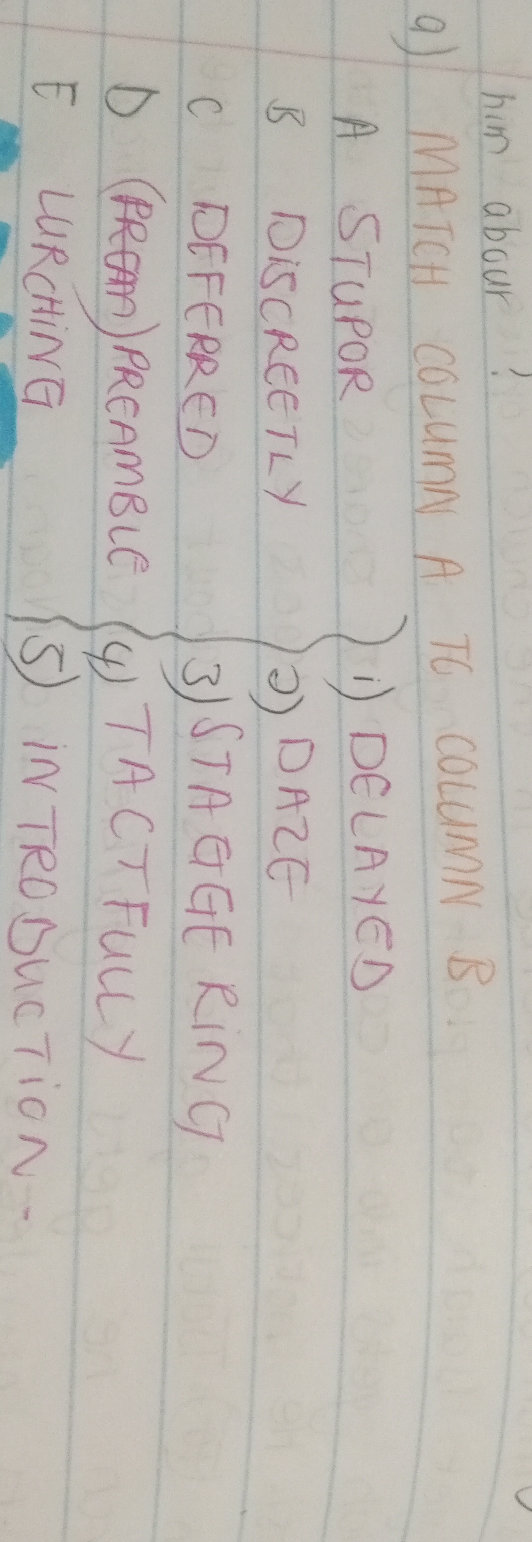 him about?
a) MATCH COLUMN A TO COLUMN B
A STUPOR 1) DELAYED
B DISCREETLY 2) DAZE
C DEFERRED 3) STAGGERING
D (PREAM) PREAMBLE 4) TACTFULLY
E LURCHING 5) INTRODUCTION.